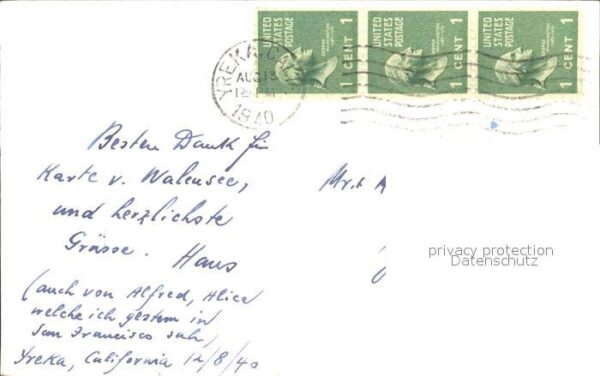 UNITED STATES POSTAGE 1 CENT 1
UNITED STATES POSTAGE 1 CENT 1
UNITED STATES POSTAGE 1 CENT 1
YREKA, CAL
AUG 13
1940
Besten Dank für
Karte v. Walensee,
und herzlichste
Grüsse. Hans
(auch von Alfred, Alice
welche ich gestern in
San Francisco sah,
Yreka, California 12/8/40
Mr. &
privacy protection
Datenschutz